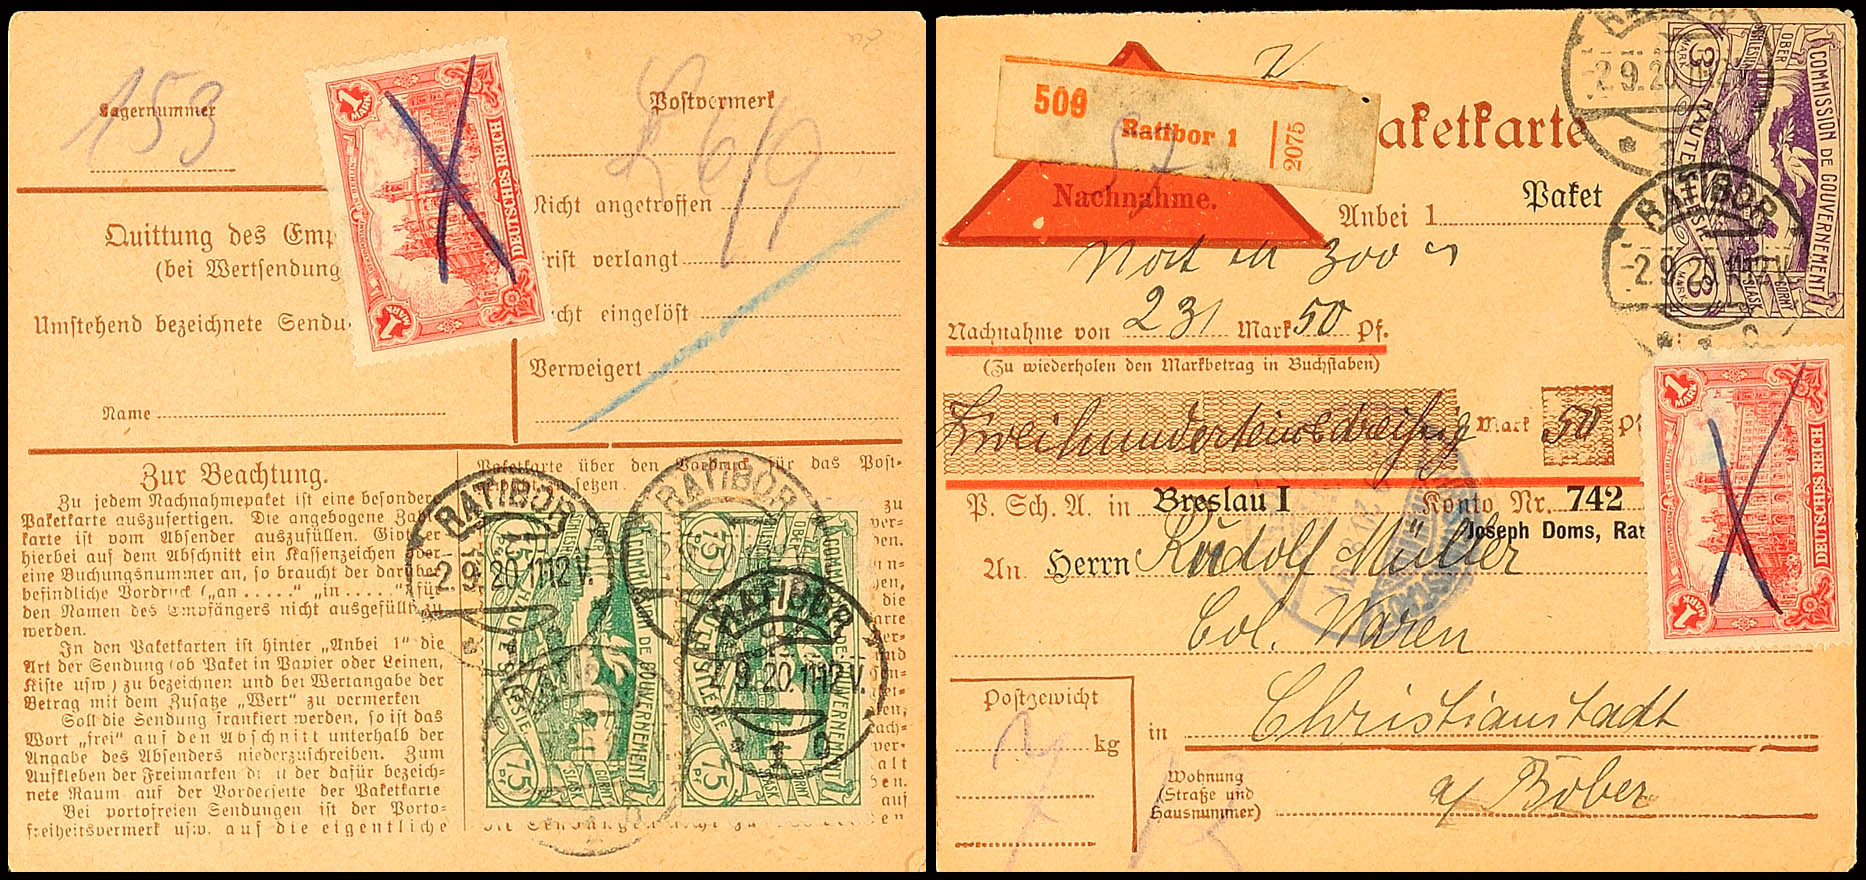 153
Lagernummer
Postvermerk
1 MARK
DEUTSCHES REICH
1 MARK
Nicht angetroffen
Quittung des Emp
(bei Wertsendung
Frist verlangt
Umstehend bezeichnete Sendu
Nicht eingelöst
Verweigert
Name
Zur Beachtung.
Zu jedem Nachnahmepaket ist eine besondere
Paketkarte auszufertigen. Die angebogene Zahl-
karte ist vom Absender auszufüllen. Gi
hierbei auf dem Abschnitt ein Kassenzeichen oder
eine Buchungsnummer an, so braucht der darüber
befindliche Vordruck („an ..... “ „in ..... “) für
den Namen des Empfängers nicht ausgefüllt zu
werden.
In den Paketkarten ist hinter „Anbei 1“ die
Art der Sendung (ob Paket in Papier oder Leinen,
Kiste usw.) zu bezeichnen und bei Wertangabe der
Betrag mit dem Zusatze „Wert“ zu vermerken
Soll die Sendung frankiert werden, so ist das
Wort „frei“ auf den Abschnitt unterhalb der
Angabe des Absenders niederzuschreiben. Zum
Aufkleben der Freimarken di t der dafür bezeich-
nete Raum auf der Vorderseite der Paketkarte
Bei portofreien Sendungen ist der Porto-
freiheitsvermerk usw. auf die eigentliche
Paketkarte über den Vordruck für das Post-
setzen.
zu
ver-
den.
RATIBOR
-2.9.20.11-12V.
RATIBOR
RATIBOR
-2.9.20.11-12V.
* 1 o
75 Pf
COMMISSION DE GOUVERNEMENT
HAUTE SILÉSIE
GÓRNY ŚLĄSK
75 Pf
75 Pf
COMMISSION DE GOUVERNEMENT
HAUTE SILÉSIE
GÓRNY ŚLĄSK
75 Pf
509
Ratibor 1
2075
aketkarte
Nachnahme.
Anbei 1
Paket
Nachnahme von 231 Mark 50 Pf.
(Zu wiederholen den Markbetrag in Buchstaben)
Zweihunderteinunddreißig Mark 50 Pf
P. Sch. A. in Breslau I Konto Nr. 742
Joseph Doms, Rat
An Herrn Rudolf Müller
Col. Waren
Postgewicht
kg
in Christianstadt
Wohnung
(Straße und
Hausnummer)
a/ Bober
RATIBOR
-2.9.20.11-12V.
RATIBOR
-2.9.20.11-12V.
3 MARK
OBER SCHLESIEN
COMMISSION DE GOUVERNEMENT
HAUTE SILÉSIE
GÓRNY ŚLĄSK
3 MARK
1 MARK
DEUTSCHES REICH
1 MARK